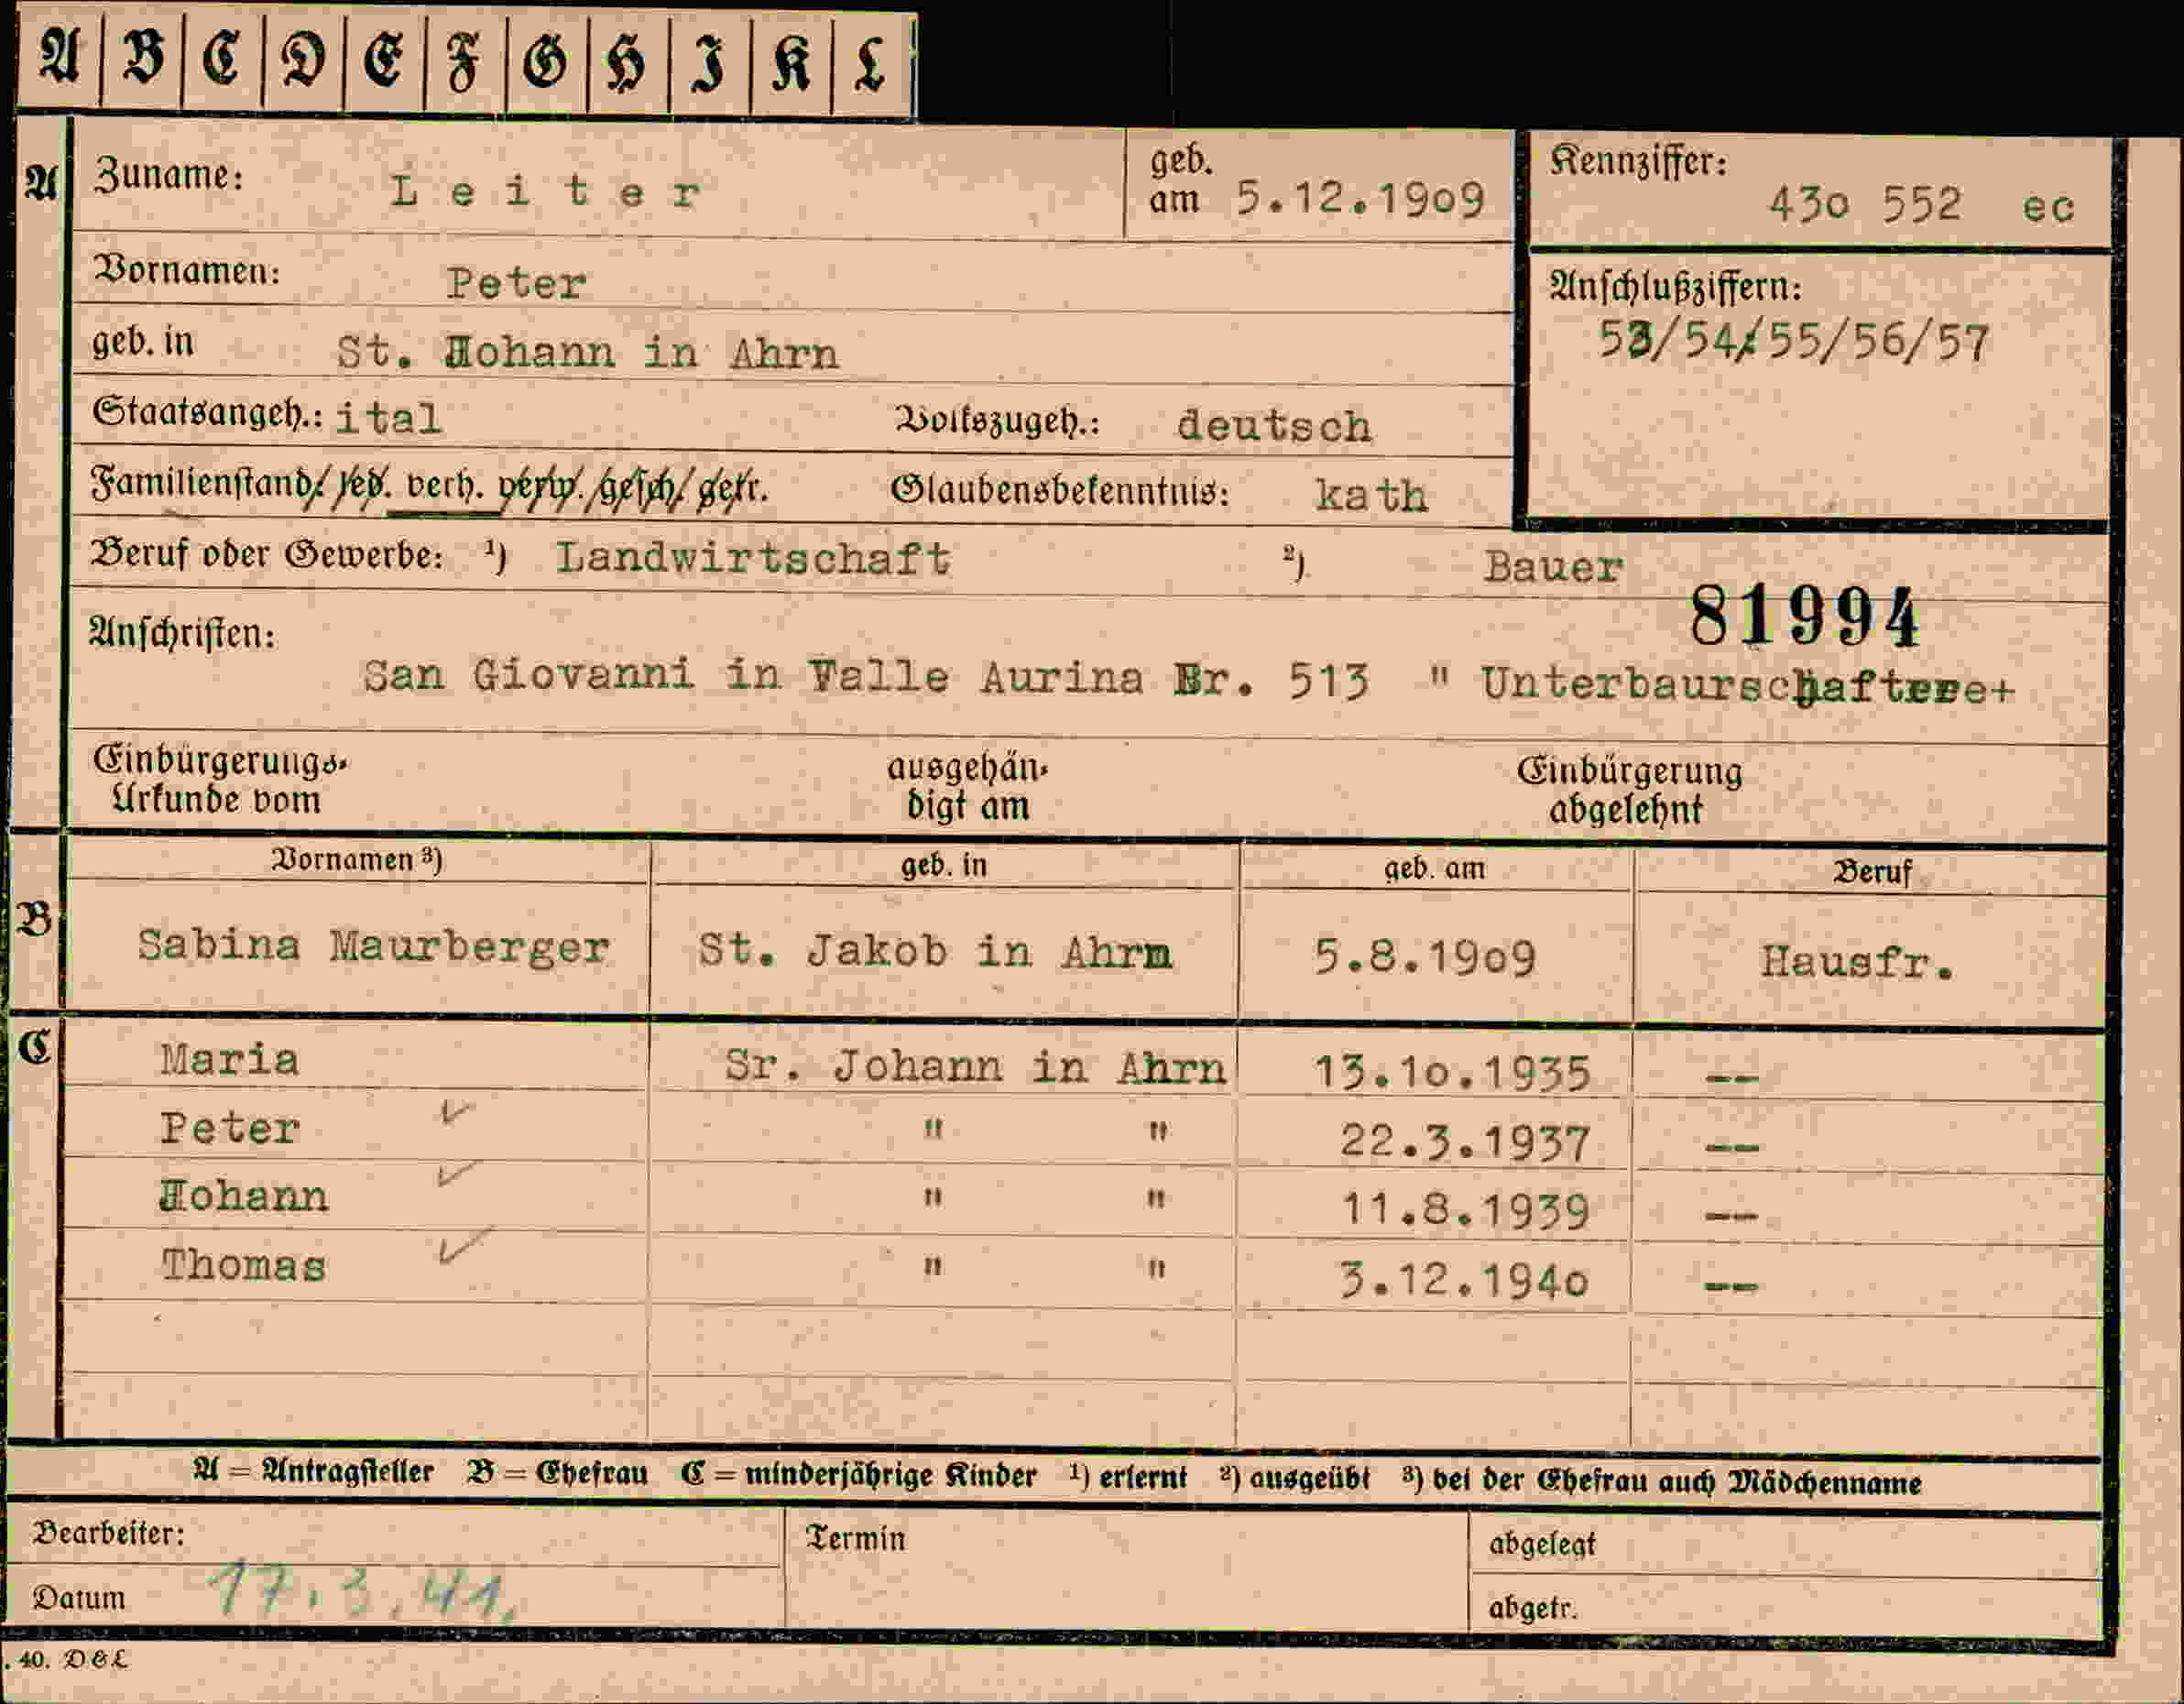 A B C D E F G H I K L
A Zuname: Leiter geb. am 5.12.1909 Kennziffer: 430 552 ec
Vornamen: Peter
Anschlußziffern: 53/54/55/56/57
geb. in St. Johann in Ahrn
Staatsangeh.: ital Volkszugeh.: deutsch
Familienstand/ led. verh. verw. gesch. getr. Glaubensbekenntnis: kath
Beruf oder Gewerbe: ¹) Landwirtschaft ²) Bauer
81994
Anschriften:
San Giovanni in Valle Aurina Nr. 513 "
Einbürgerungs- Urkunde vom ausgehän- digt am Einbürgerung abgelehnt
Vornamen ³) geb. in geb. am Beruf
B Sabina Maurberger St. Jakob in Ahrn 5.8.1909 Hausfr.
C Maria Sr. Johann in Ahrn 13.10.1935 --
Peter " " 22.3.1937 --
Johann " " 11.8.1939 --
Thomas " " 3.12.1940 --
A = Antragsteller B = Ehefrau C = minderjährige Kinder ¹) erlernt ²) ausgeübt ³) bei der Ehefrau auch Mädchenname
Bearbeiter: Termin abgelegt
Datum 17.3.41. abgetr.
. 40. D & L